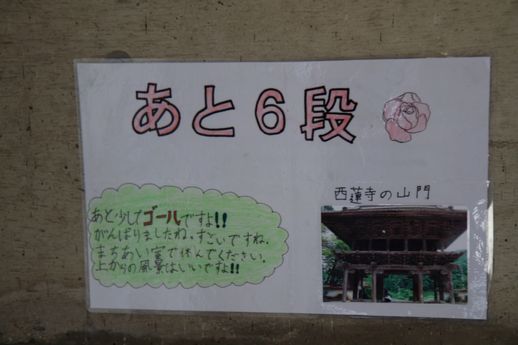 あと6段
西蓮寺の山門
あと少しでゴールですよ!!
がんばりましたね。すごいですね。
まちあい室で休んでください。
上からの風景はいいですよ!!